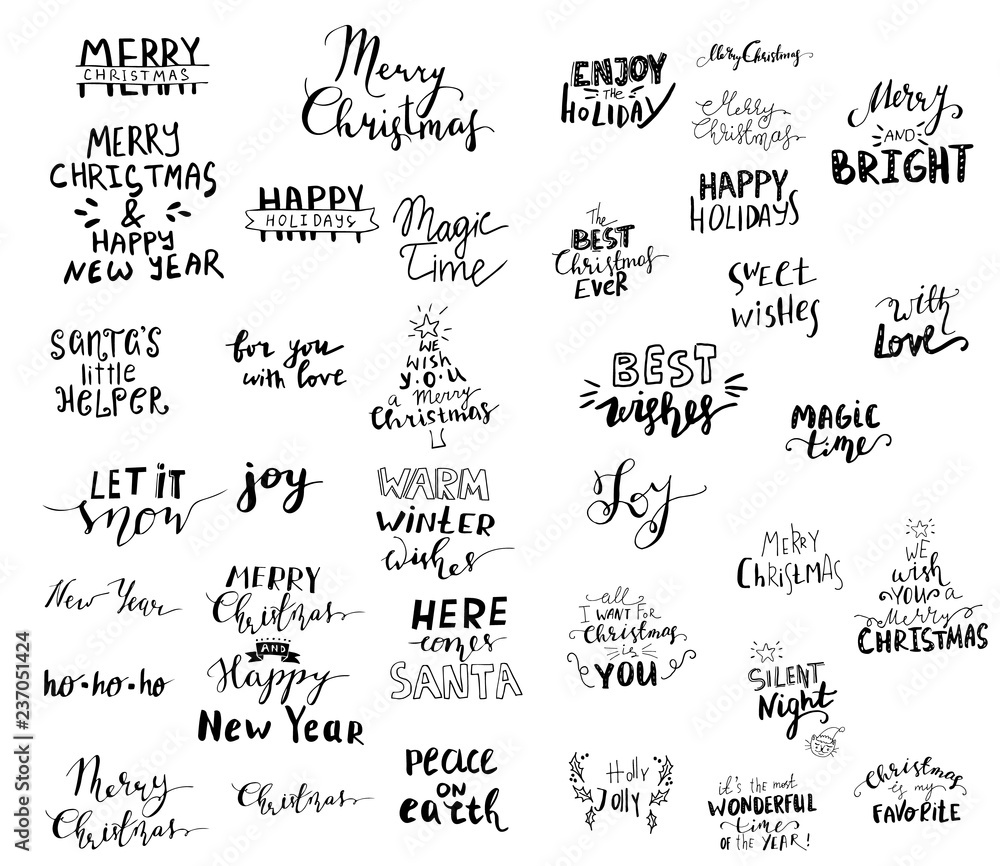 MERRY
CHRISTMAS
MERRY
Merry
Christmas
ENJOY
THE
HOLIDAY
Merry Christmas
Merry
Christmas
Merry
AND
BRIGHT
MERRY
CHRISTMAS
&
HAPPY
NEW YEAR
HAPPY
HOLIDAYS
Magic
Time
The
BEST
Christmas
EVER
HAPPY
HOLIDAYS
SWEET
WISHES
with
Love
SANTA'S
little
HELPER
for you
with love
WE
WISH
Y.O.U
a Merry
Christmas
BEST
wishes
MAGIC
time
LET IT
snow
joy
WARM
WINTER
wishes
Joy
MERRY
CHRISTMAS
WE
wish
YOU a
Merry
CHRISTMAS
New Year
MERRY
Christmas
AND
Happy
New Year
HERE
comes
SANTA
all
I WANT FOR
Christmas
is
YOU
SILENT
Night
ho·ho·ho
Merry
Christmas
Christmas
PEACE
ON
earth
Holly
Jolly
it's the most
WONDERFUL
time
OF THE YEAR!
Christmas
is my
FAVORITE
Adobe Stock | #237051424